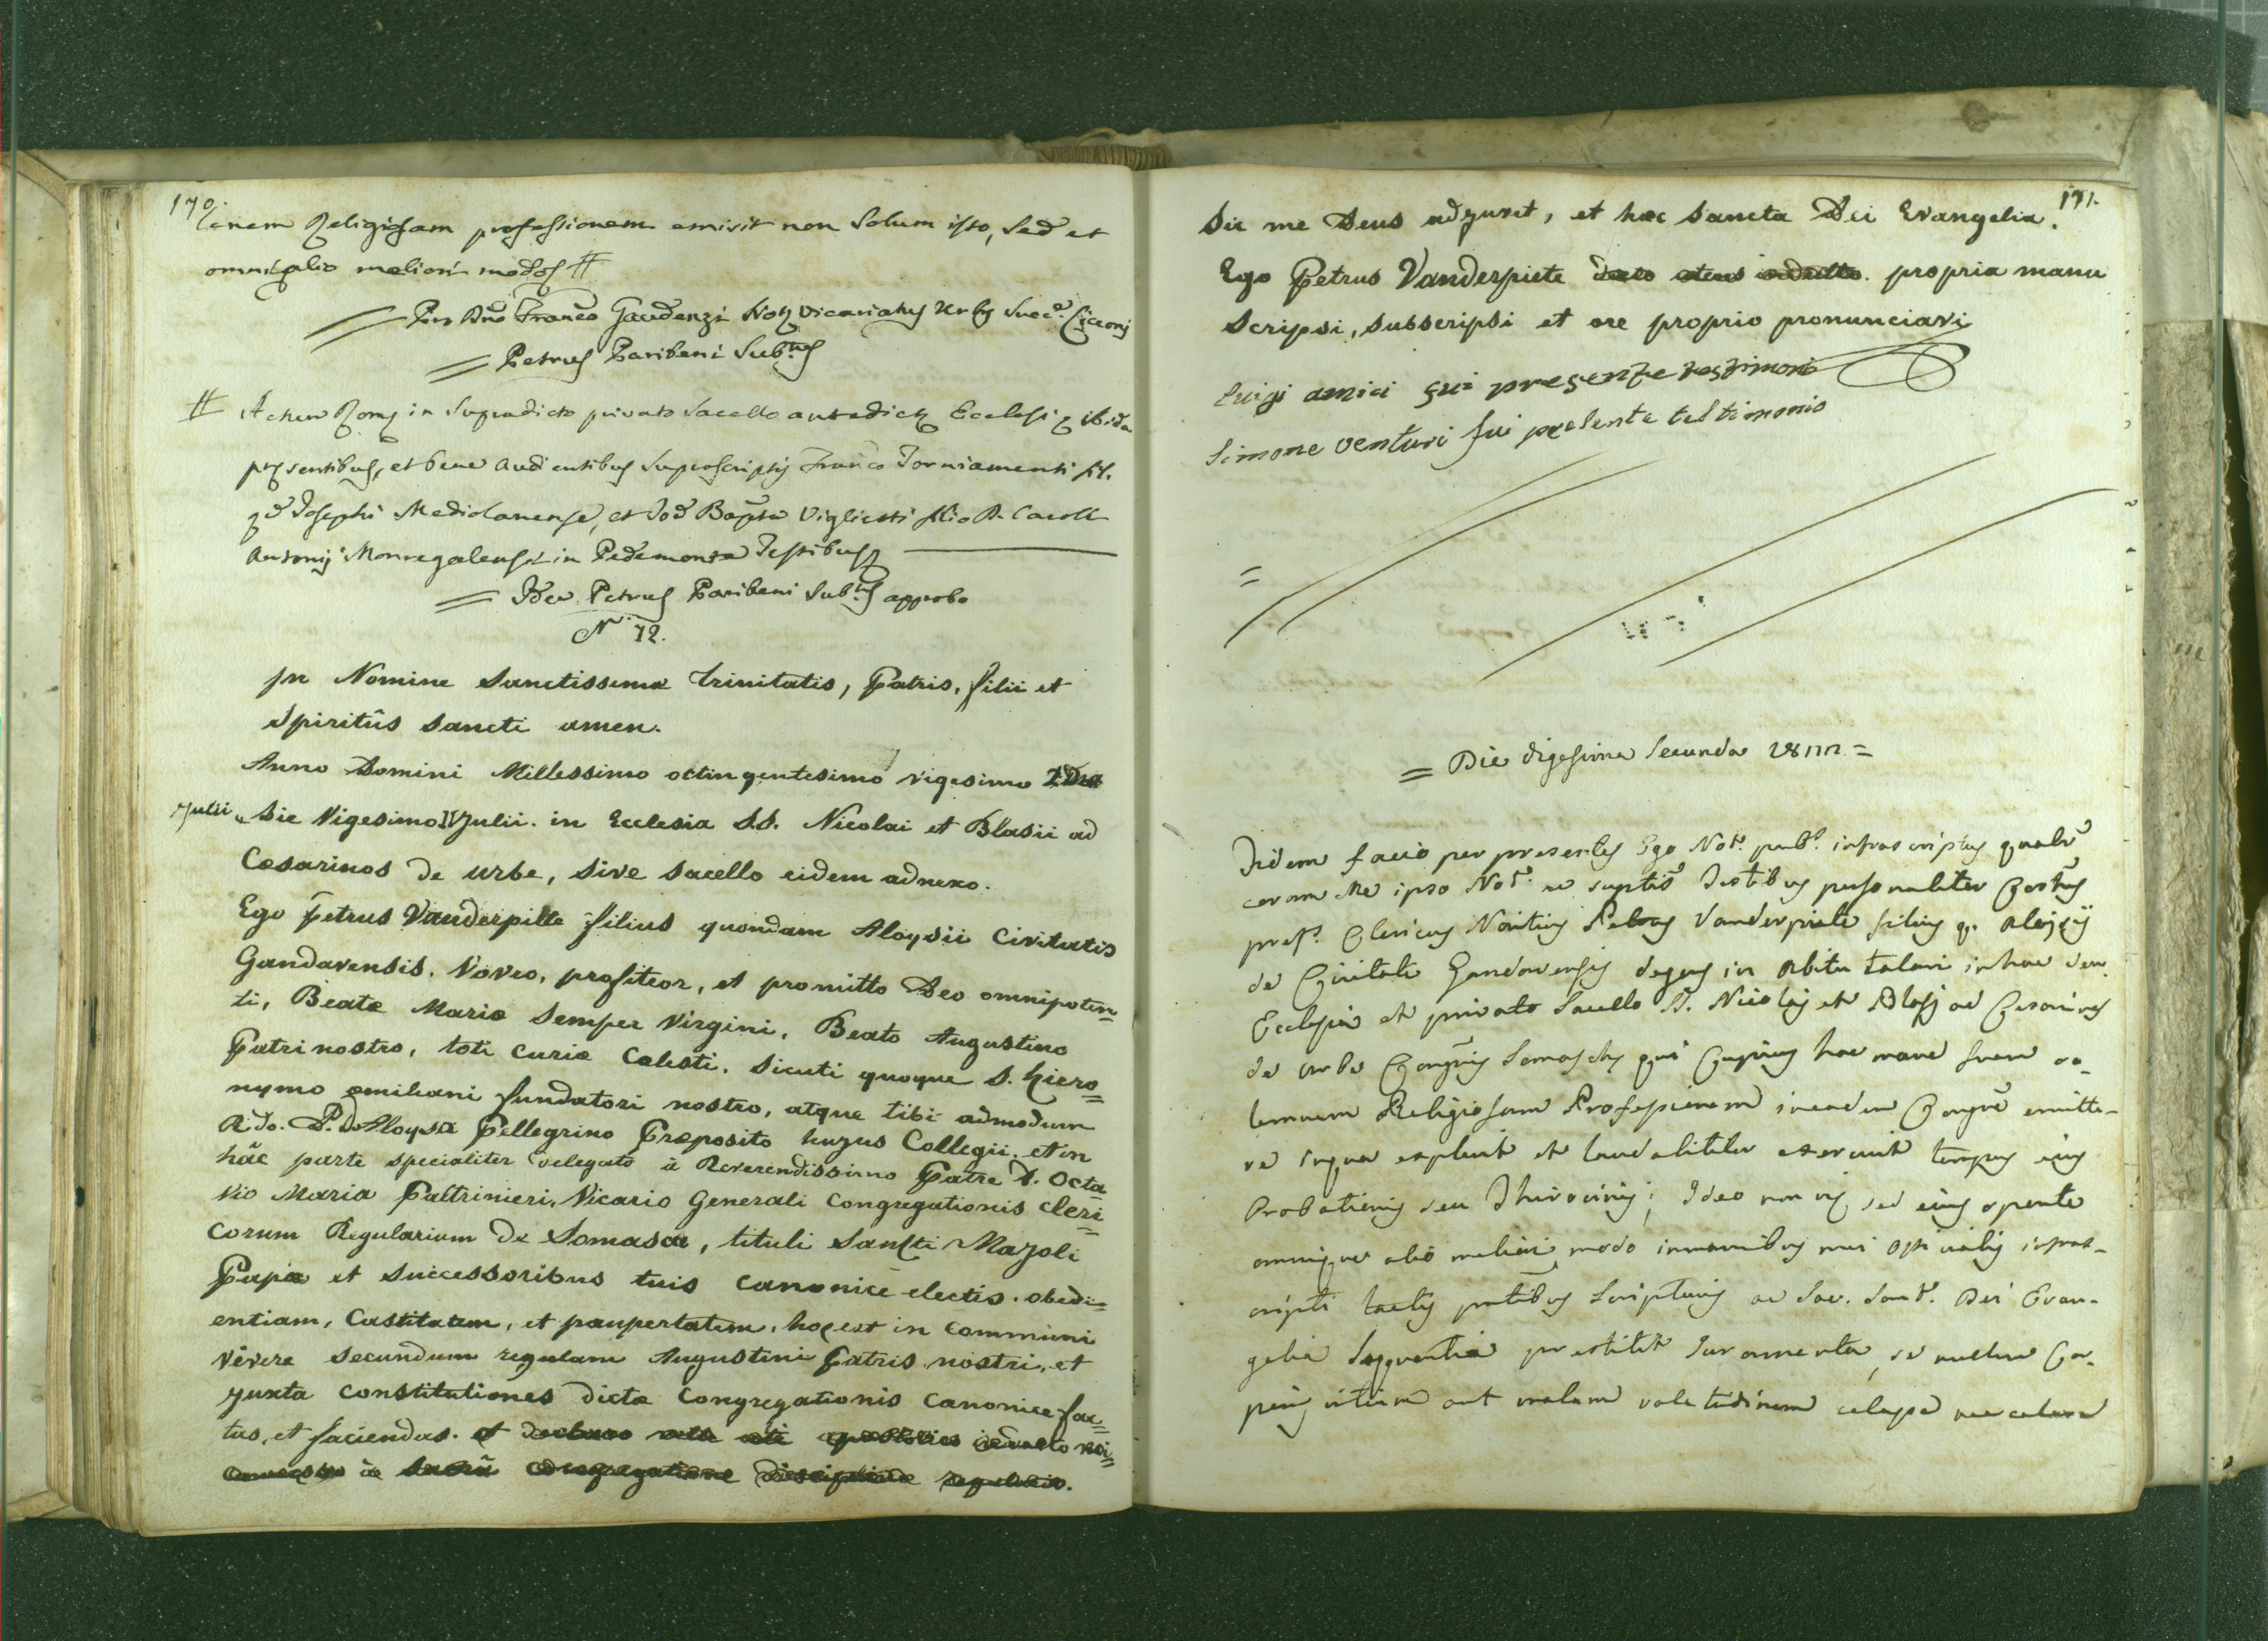 170.
lenem Religiosam professionem emisit non solum isto, sed et
omni alio meliori modo #
= Pro Dño Franco Gaudenzi Not Vicariatus Urbis Succ.e Cicconi
= Petrus Paribeni Sub.tus
# Actum Rome in Supradicto privato Sacello antedicte Ecclesie ibidem
presentibus, et bene audientibus suprascriptis Franco Torniamenti fil.
qd Josephi Mediolanense, et Joe Bapta Vigliesti filio D. Caroli
Antonij Monregalensi in Pedemonte Testibus
= Idem Petrus Paribeni Sub.tus approbo
N. 72.
In Nomine Sanctissima Trinitatis, Patris, filii et
Spiritûs Sancti amen.
Anno Domini Millessimo octingentesimo vigesimo 2.do
Julii die Vigesimo II Julii. in Ecclesia S.S. Nicolai et Blasii ad
Cæsarinos de urbe, sive sacello eidem adnexo.
Ego Petrus Vanderpitte filius quondam Aloysii Civitatis
Gandavensis. Voveo, profiteor, et promitto Deo omnipoten=
ti, Beatæ Mariæ Semper Virgini, Beato Augustino
Patri nostro, toti curiæ Cælesti. sicuti quoque S. Hiero=
nymo æmiliani fundatori nostro, atque tibi admodum
R.do. P. D. Aloysio Pellegrino Præposito hujus Collegii, et in
hâc parte specialiter delegato à Reverendissimo Patre D. Octa
vio Maria Paltrinieri, Vicario Generali Congregationis cleri=
corum Regularium de Somascâ, tituli Sancti Majoli
Papiæ et successoribus tuis canonicè electis. obedi=
entiam, Castitatem, et paupertatem, hoc est in communi
vivere secundum regulam Augustini Patris nostri, et
juxta constitutiones dictæ Congregationis canonice fac=
tas, et faciendas. et
171.
Sic me Deus adjuvet, et hæc sancta Dei Evangelia.
Ego Petrus Vanderpiete propria manu
scripsi, subscripsi et ore proprio pronunciavi
Luigi amici fui presente testimonio
Simone Venturi fui presente testimonio
= Die vigesima secunda 1822 =
Fidem facio per presentes Ego Not.s pub.s infrascriptus qualr
coram Me ipso Not.o ac suptis Testibus personaliter Constus
pref.s Clericus Novitius Petrus Vanderpiete filius q. Aloysij
de Civitate Gandavensis degens in Abitu talari in hac Ven.
Ecclesia et privato Sacello SS. Nicolaj et Blasj ad Cesarinos
de Urbe Congnis Somasche qui Cupiens hac mane suam so-
lemnem Religiosam Professionem in eadem Congne emitte-
re in qua explevit et laudabiliter exercuit tempus ejus
Probationis seu Thirocinij; Ideo non vi, sed ejus sponte
omnique alio meliori modo in manibus mei Officialis infras-
cripti tactis prntibus Scripturis ac Sac. Sant. Dei Evan-
gelia Sequentia prestitit Juramenta, se nullum Cor-
poris vitium aut malam valetudinem celasse nec celare